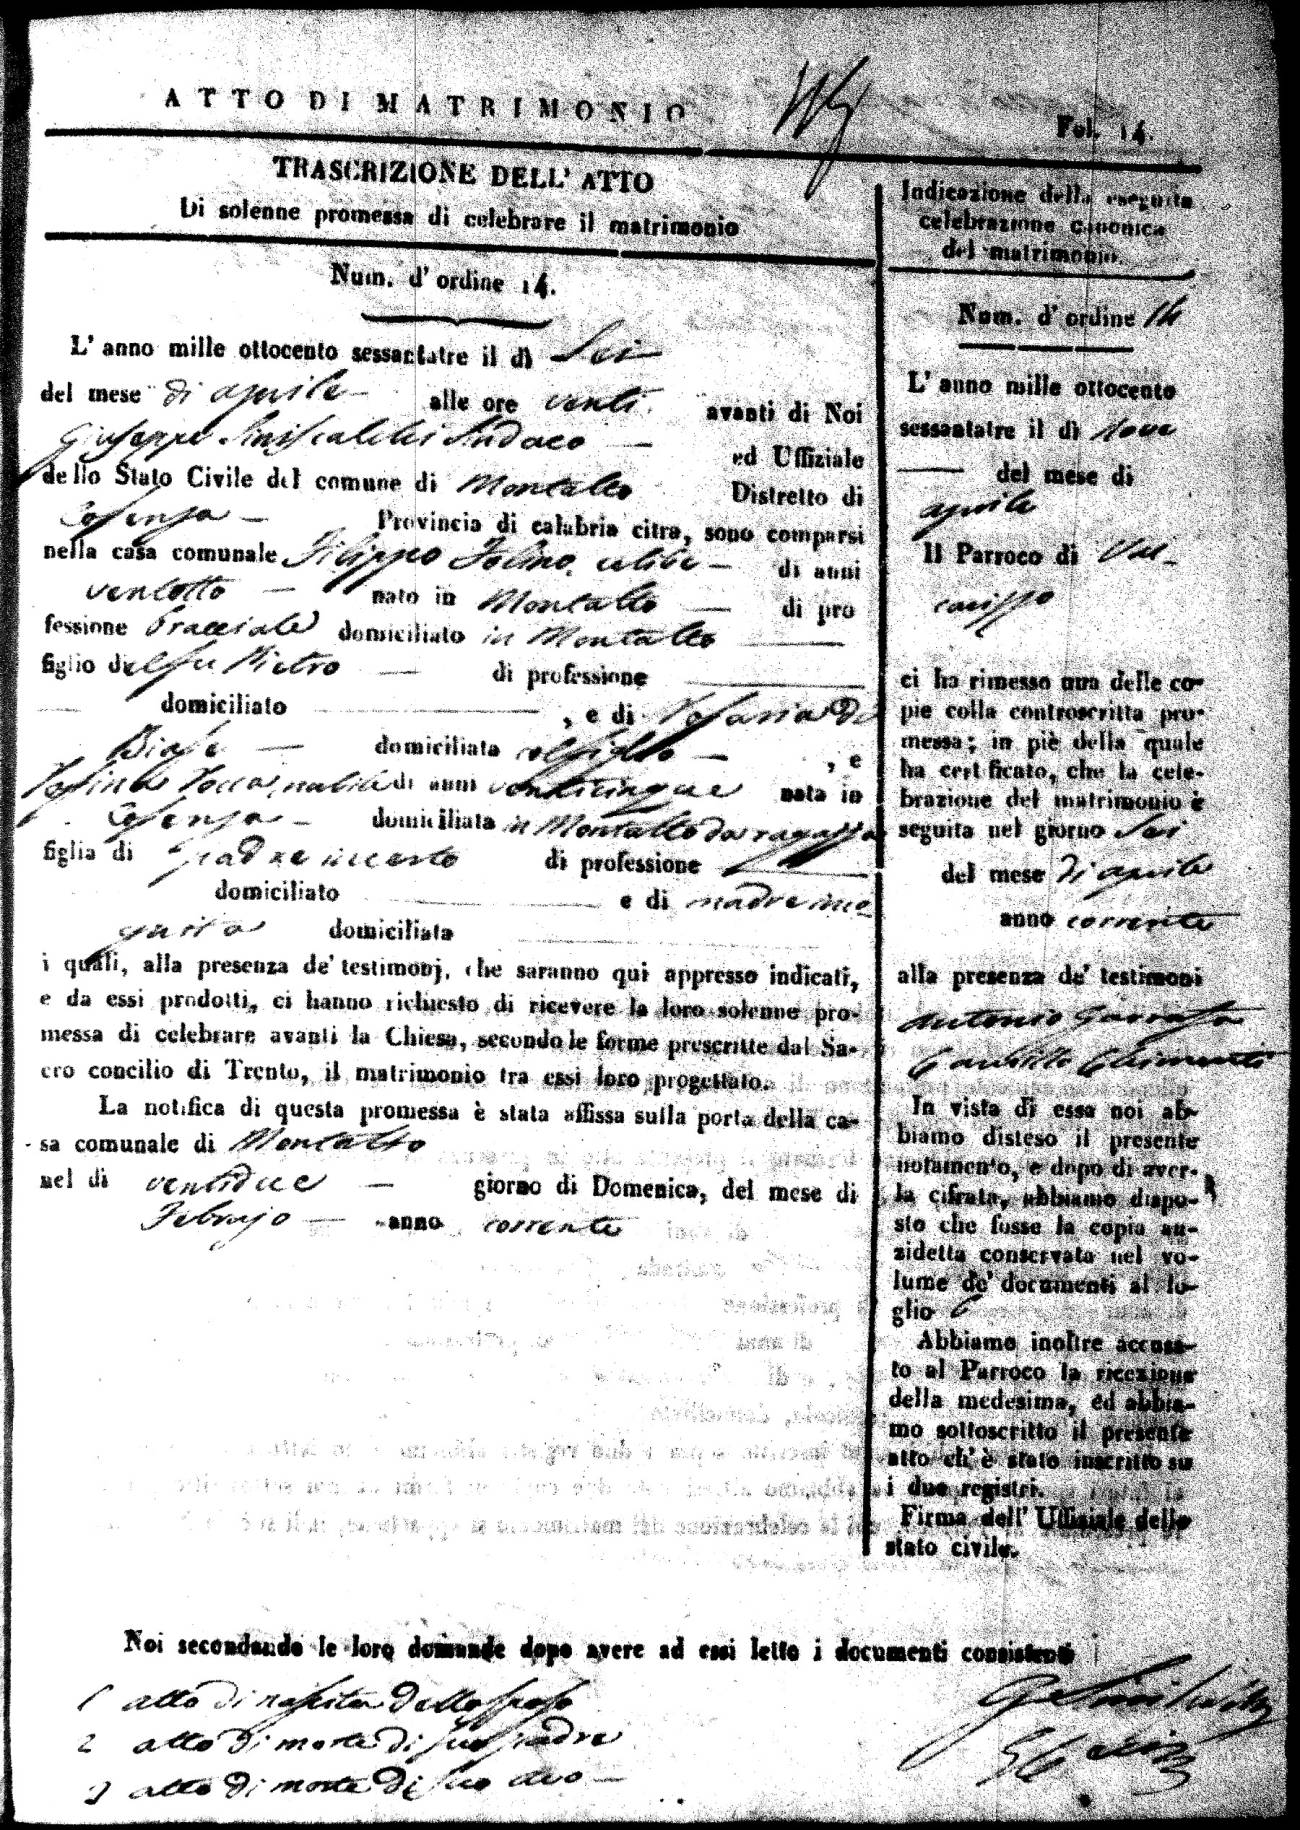 ATTO DI MATRIMONIO
Fol. 14.
TRASCRIZIONE DELL' ATTO
Di solenne promessa di celebrare il matrimonio
Num. d' ordine 14.
L' anno mille ottocento sessantatre il dì Sei
del mese di aprile alle ore venti avanti di Noi
Giuseppe Siniscalchi Sindaco ed Uffiziale
dello Stato Civile del comune di Montalto Distretto di
Cosenza Provincia di calabria citra, sono comparsi
nella casa comunale Filippo celibe di anni
ventotto nato in Montalto di pro
fessione bracciale domiciliato in Montalto
figlio del fu Pietro di professione
domiciliato , e di Rosaria Di
Biase domiciliata col figlio , e
Rosina nubile di anni venticinque nata in
Cosenza domiciliata in Montalto da ragazza
figlia di padre incerto di professione
domiciliato e di madre
domiciliata
i quali, alla presenza de' testimonj, che saranno qui appresso indicati,
e da essi prodotti, ci hanno richiesto di ricevere la loro solenne pro-
messa di celebrare avanti la Chiesa, secondo le forme prescritte dal Sa-
cro concilio di Trento, il matrimonio tra essi loro progettato.
La notifica di questa promessa è stata affissa sulla porta della ca-
sa comunale di Montalto
nel di ventidue giorno di Domenica, del mese di
Febrajo anno corrente
Indicazione della eseguita
celebrazione canonica
del matrimonio.
Num. d' ordine 14
L' anno mille ottocento
sessantatre il dì nove
del mese di
aprile
Il Parroco di Vac-
carizzo
ci ha rimesso una delle co-
pie colla controscritta pro-
messa; in piè della quale
ha certificato, che la cele-
brazione del matrimonio è
seguita nel giorno Sei
del mese di aprile
anno corrente
alla presenza de' testimoni
Antonio
Camillo Chimenti
In vista di essa noi ab-
biamo disteso il presente
notamento, e dopo di aver-
la cifrata, abbiamo dispo-
sto che fosse la copia an-
zidetta conservata nel vo-
lume de' documenti al fo-
glio 6
Abbiamo inoltre accusa-
to al Parroco la ricezione
della medesima, ed abbia-
mo sottoscritto il presente
atto ch' è stato inscritto su
i due registri.
Firma dell' Uffiziale dello
stato civile.
Noi secondando le loro domande dopo avere ad essi letto i documenti consistenti
1 atto di nascita dello sposo
2 atto di morte di suo padre
3 atto di morte di suo avo